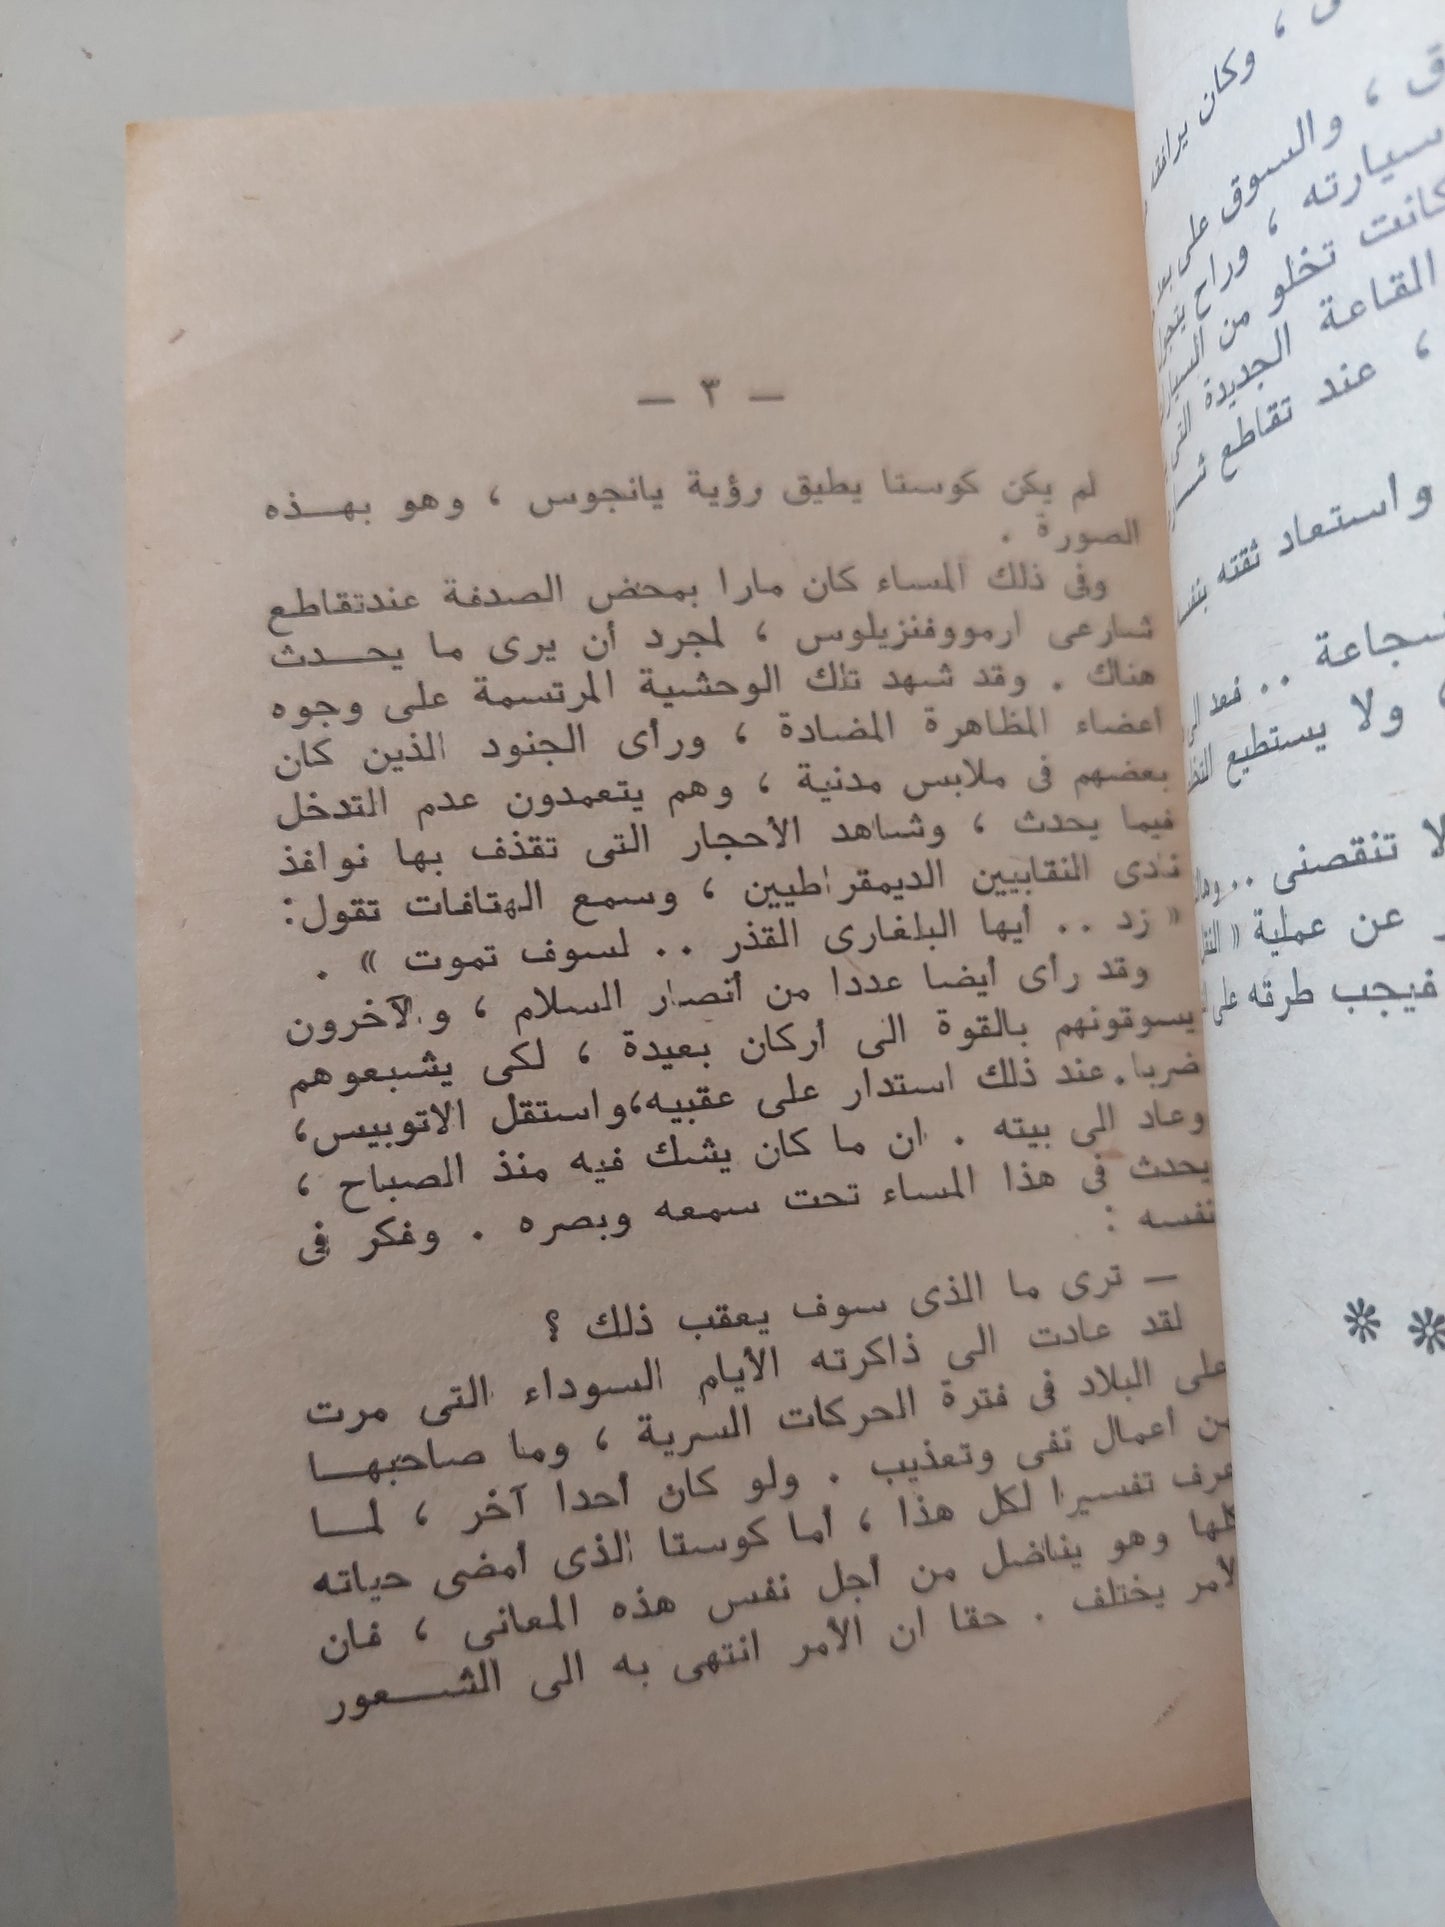 — ٣ —
لم يكن كوستا يطيق رؤية يانجوس ، وهو بهـــذه
الصورة .
وفى ذلك المساء كان مارا بمحض الصدفة عندتقاطع
شارعى ارمووفنزيلوس ، لمجرد أن يرى ما يحـــدث
هناك . وقد شهد تلك الوحشية المرتسمة على وجوه
أعضاء المظاهرة المضادة ، ورأى الجنود الذين كان
بعضهم فى ملابس مدنية ، وهم يتعمدون عدم التدخل
فيما يحدث ، وشاهد الأحجار التى تقذف بها نوافذ
نادى النقابيين الديمقراطيين ، وسمع الهتافات تقول:
« زد .. أيها البلغارى القذر .. لسوف تموت » .
وقد رأى أيضا عددا من أنصار السلام ، والآخرون
يسوقونهم بالقوة الى أركان بعيدة ، لكى يشبعوهم
ضربا.عند ذلك استدار على عقبيه،واستقل الاتوبيس،
وعاد الى بيته . ان ما كان يشك فيه منذ الصباح ،
يحدث فى هذا المساء تحت سمعه وبصره . وفكر فى
نفسه :
— ترى ما الذى سوف يعقب ذلك ؟
لقد عادت الى ذاكرته الأيام السوداء التى مرت
على البلاد فى فترة الحركات السرية ، وما صاحبهـــا
من أعمال نفى وتعذيب . ولو كان أحدا آخر ، لمـــا
عرف تفسيرا لكل هذا ، أما كوستا الذى أمضى حياته
كلها وهو يناضل من أجل نفس هذه المعانى ، فان
الأمر يختلف . حقا ان الأمر انتهى به الى الشـــعور
، وكان يرافقه
، والسوق على
سيارته ، وراح
كانت تخلو من
القاعة الجديدة
، عند تقاطع
واستعاد ثقته
.. فعد الى
ولا يستطيع
تنقصنى ..
عن عملية «
فيجب طرقه على